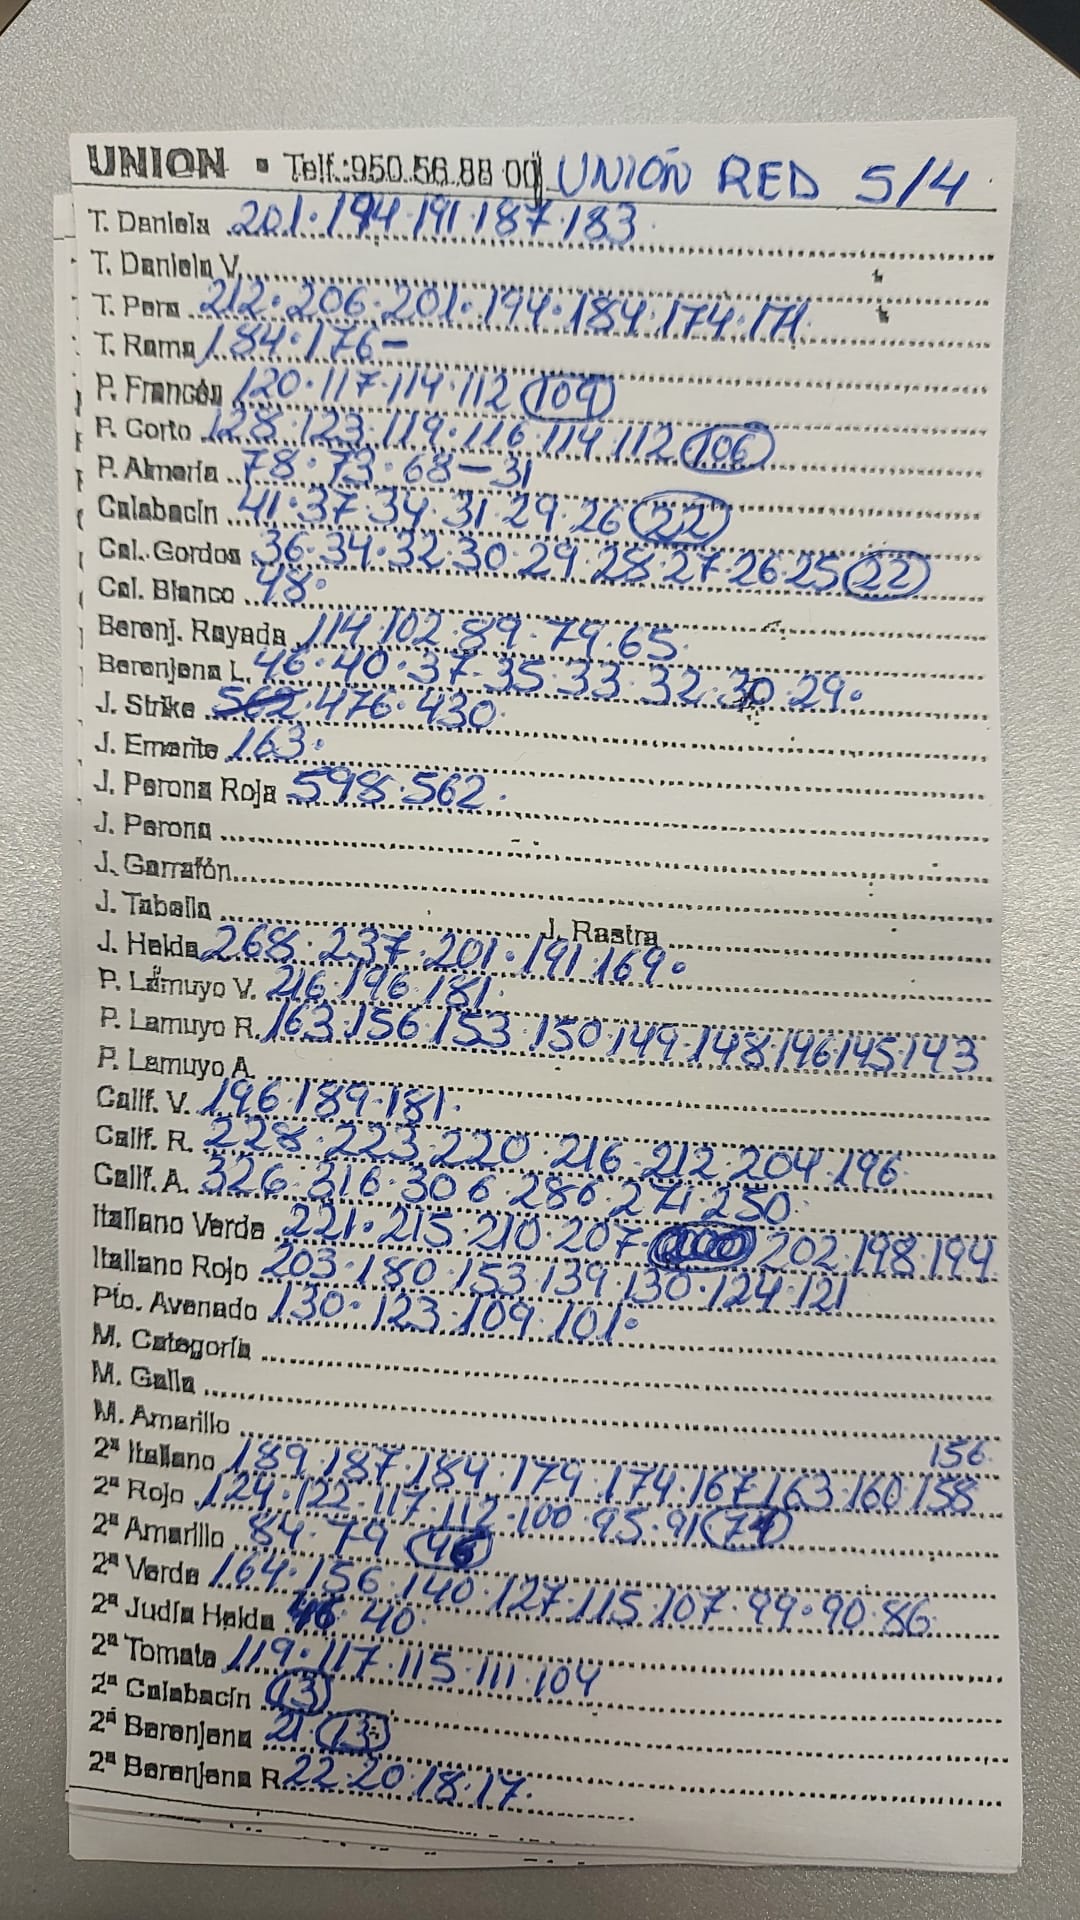 UNION ▪ Telf.:950.56.88 00 UNIÓN RED 5/4
T. Daniela 201·194·191·187·183
T. Daniela V.
T. Pera 212·206·201·194·184·174·171
T. Rama 184·176-
P. Francés 120·117·114·112 (109)
P. Corto 128·123·119·116·114 112 (106)
P. Almería 78·73·68-31
Calabacín 41·37·34·31·29·26 (22)
Cal. Gordos 36·34·32·30·29·28·27·26·25 (22)
Cal. Blanco 48·
Berenj. Rayada 114·102·89·79·65
Berenjena L. 46·40·37·35·33·32·30·29·
J. Strike 562·476·430
J. Emerite 163·
J. Perona Roja 598·562
J. Perona
J. Garrafón
J. Tabella J. Rastra
J. Helda 268·237·201·191·169·
P. Lamuyo V. 216·196·181
P. Lamuyo R. 163·156·153·150·149·148·146·145·143
P. Lamuyo A.
Calif. V. 196·189·181·
Calif. R. 228·223·220·216·212·204·196
Calif. A. 326·316·306·286·271·250
Italiano Verde 221·215·210·207· 202·198·194
Italiano Rojo 203·180·153·139·130·124·121
Pto. Asado 130·123·109·101·
M. Categoría
M. Galia
M. Amarillo
156
2ª Italiano 189·187·184·179·174·167·163·160·158
2ª Rojo 124·122·117·112·100·95·91 (74)
2ª Amarillo 84·79 (46)
2ª Verde 164·156·140·127·115·107·99·90·86
2ª Judía Helda 46·40
2ª Tomate 119·117·115·111·104
2ª Calabacín (13)
2ª Berenjena 21·(13)
2ª Berenjena R. 22·20·18·17·